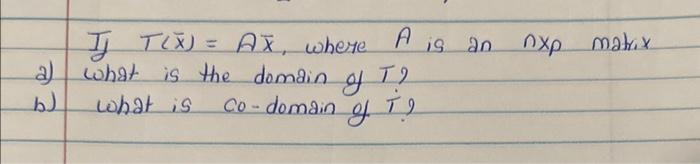 If T(x̄) = Ax̄, where A is an nxp matrix
a) what is the domain of T?
b) what is co-domain of T?